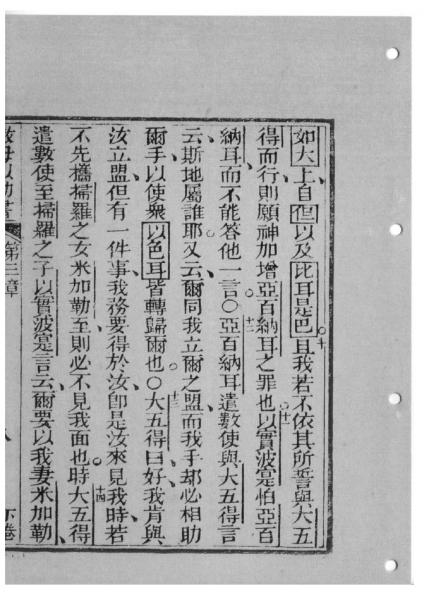 如大上自但以及比耳是巴且我若不依其所誓與大五
十
得而行則願神加增亞百納耳之罪也以實波寔怕亞百
十一
納耳而不能答他一言〇亞百納耳遣數使與大五得言
十二
云斯地屬誰耶又云爾同我立爾之盟而我手都必相助
爾手以使衆以色耳皆轉歸爾也〇大五得曰好我肯與
十三
汝立盟但有一件事我務要得於汝卽是汝來見我時若
不先攜掃羅之女米加勒至則必不見我面也時大五得
十四
遣數使至掃羅之子以實波寔言云爾要以我妻米加勒
第三章